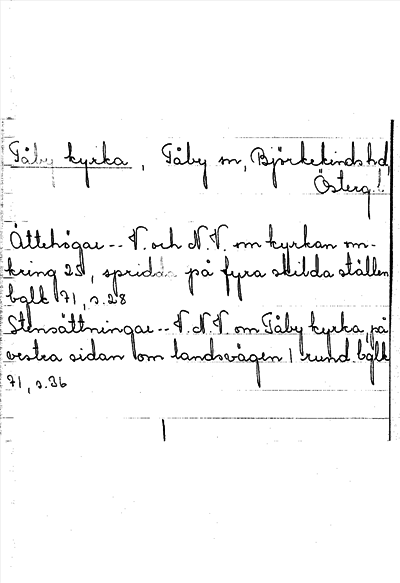 Tåby kyrka, Tåby sn, Björkekinds hd,
Österg l.
Ättehögar -- V. och N.V. om kyrkan om-
kring 25, spridda på fyra skilda ställen
bglk 71, s.28
Stensättningar -- V.N.V. om Tåby kyrka, på
vestra sidan om landsvägen 1 rund. bglk
71, s.36